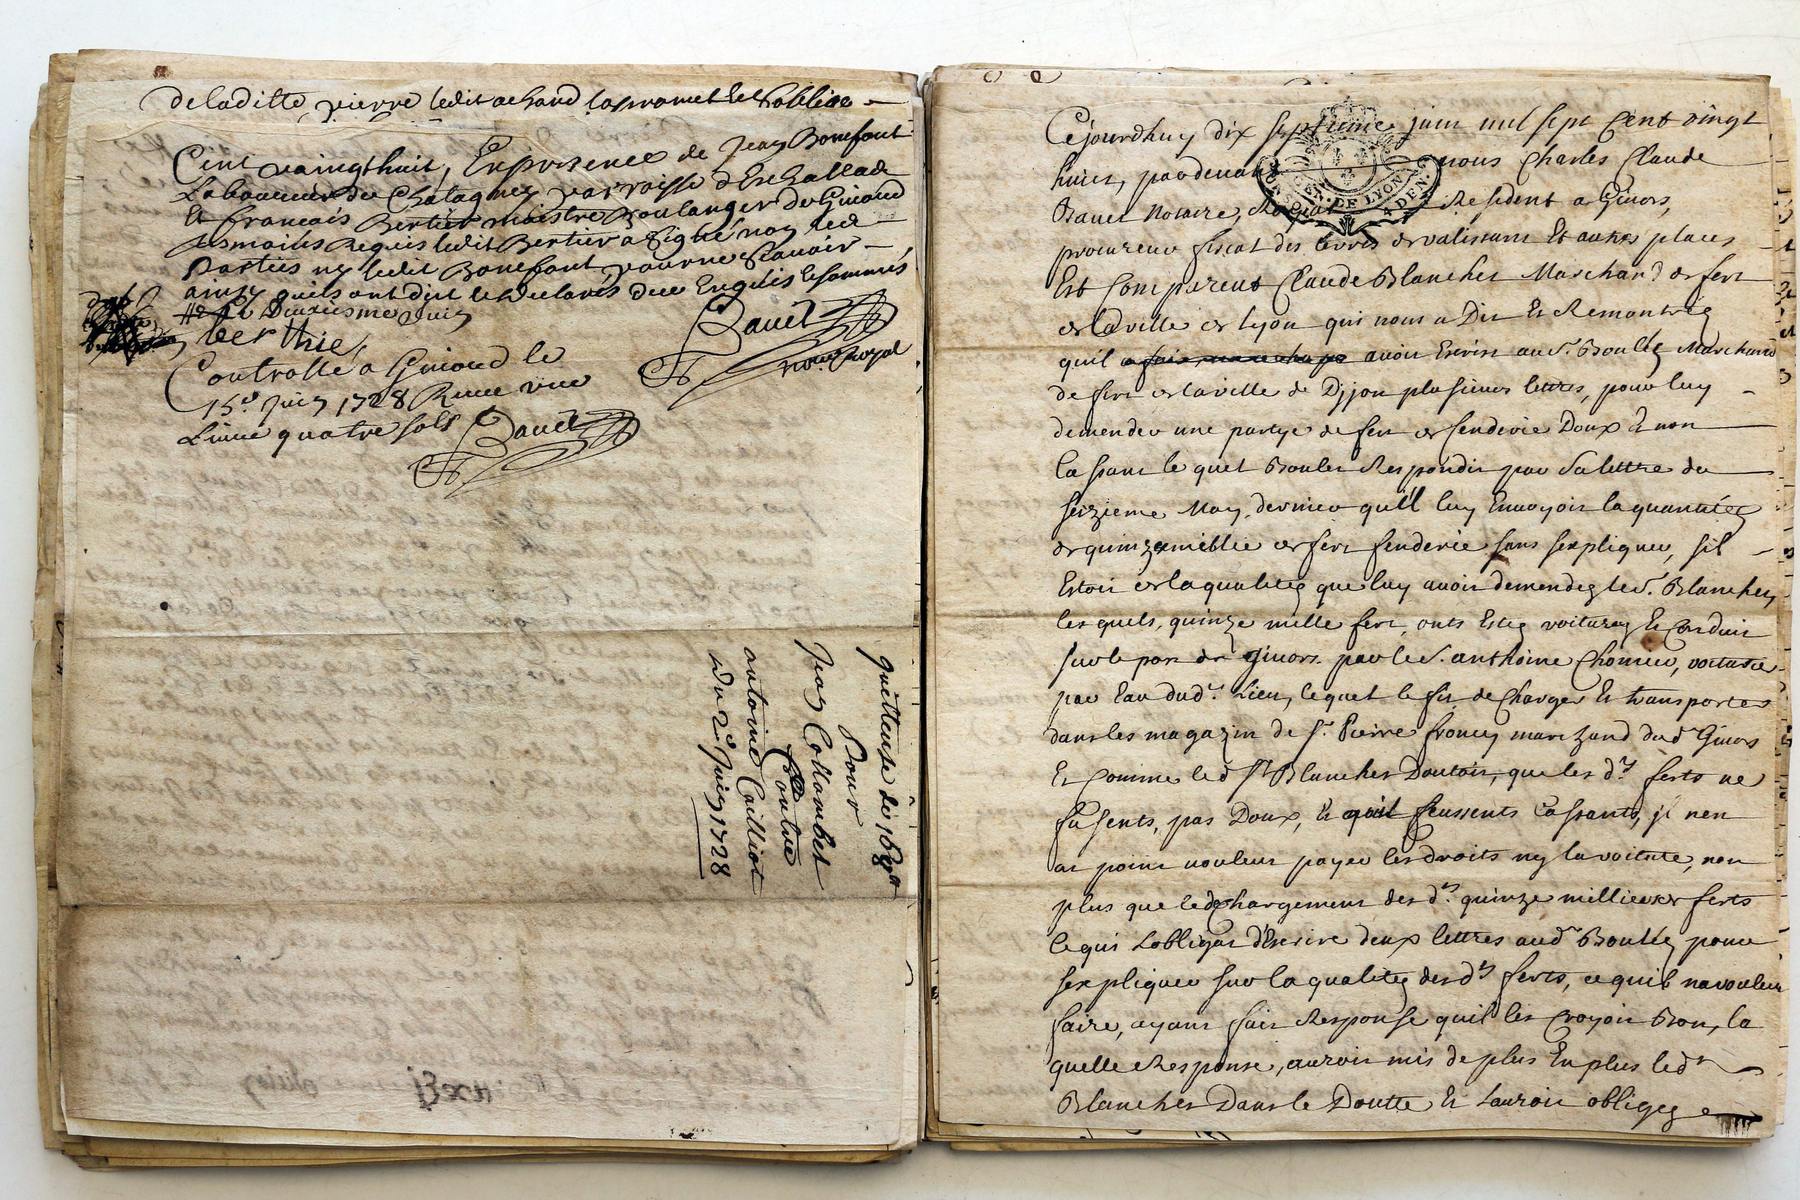 de laditte pierre ledit achand la promet et soblige
Cent vaingt huit, En presence de Jean Bonefont
Laboureur de Chatagney parroisse d'Eschallad
Et francois Bertier maistre Boulanger de Givord
tesmoins Requis ledit Bertier a signé non les
Parties ny ledit Bonefont pour ne scavoir
ainsy quils ont dit et declarés de ce Enquis et sommés
deuxiesme Juin
berthie
Bauet
no.re Royal
Controllé a Givord le
15e Juin 1728 Receu
Livre quatre sols Bauet
quittense de
Pour
Jean Collombet
Contre
antoine Cailliot
du 2e Juin 1728
Cejourdhuy dix septieme juin mil sept Cent vingt
huict, pardevant nous Charles Claude
Bauet Notaire, Royal Resident a Givors,
GEN. DE LYON
4 DEN
procureur fiscal des et autres places
Est Compareut Claude Blanchet Marchand de fert
de la ville de Lyon qui nous a Dit Et Remontréz
quil avoir Escrist au Sr. Boulléz Marchand
de fert de la ville de Dijon plusieurs lettres, pour luy
demender une partye de fert de fenderie Doux & non
Cassant le quel Boulet Respondit par sa lettre du
seizieme May dernier qu'il luy Envoyoit la quantitéz
de quinze millie de fert fenderie sans sexpliquer, sil
Estoit de la qualitéz que luy avoit demendez le Sr. Blanchet
les quels, quinze mille fert, onts Estéz voiturez Et Conduit
sur le port de Givors par le Sr. anthoine Chomer, voiturie
par Eau dud.t Lieu, lequel le fit deCharger Et transporter
dans les magazin de Sr. Pierre francey marchand dud.t Givors
Et comme led.t Sr. Blanchet Doutoit, que les d.ts ferts ne
fusents, pas Doux, & quil feussents Cassants, jl nen
at point vouleu payer les droits ny la voiture, non
plus que le deChargement des d.ts quinze millier de ferts
ce qui Lobligat d'Escrire deux lettres aud.t Boulléz pour
sexpliquer sur la qualitéz des d.ts ferts, ce quil na vouleu
faire, ayant fait Responce quil les croyoit Bon, la
quelle Response, auroit mis de plus En plus led.t
Blanchet Dans le Doutte Et Lauroit obligez